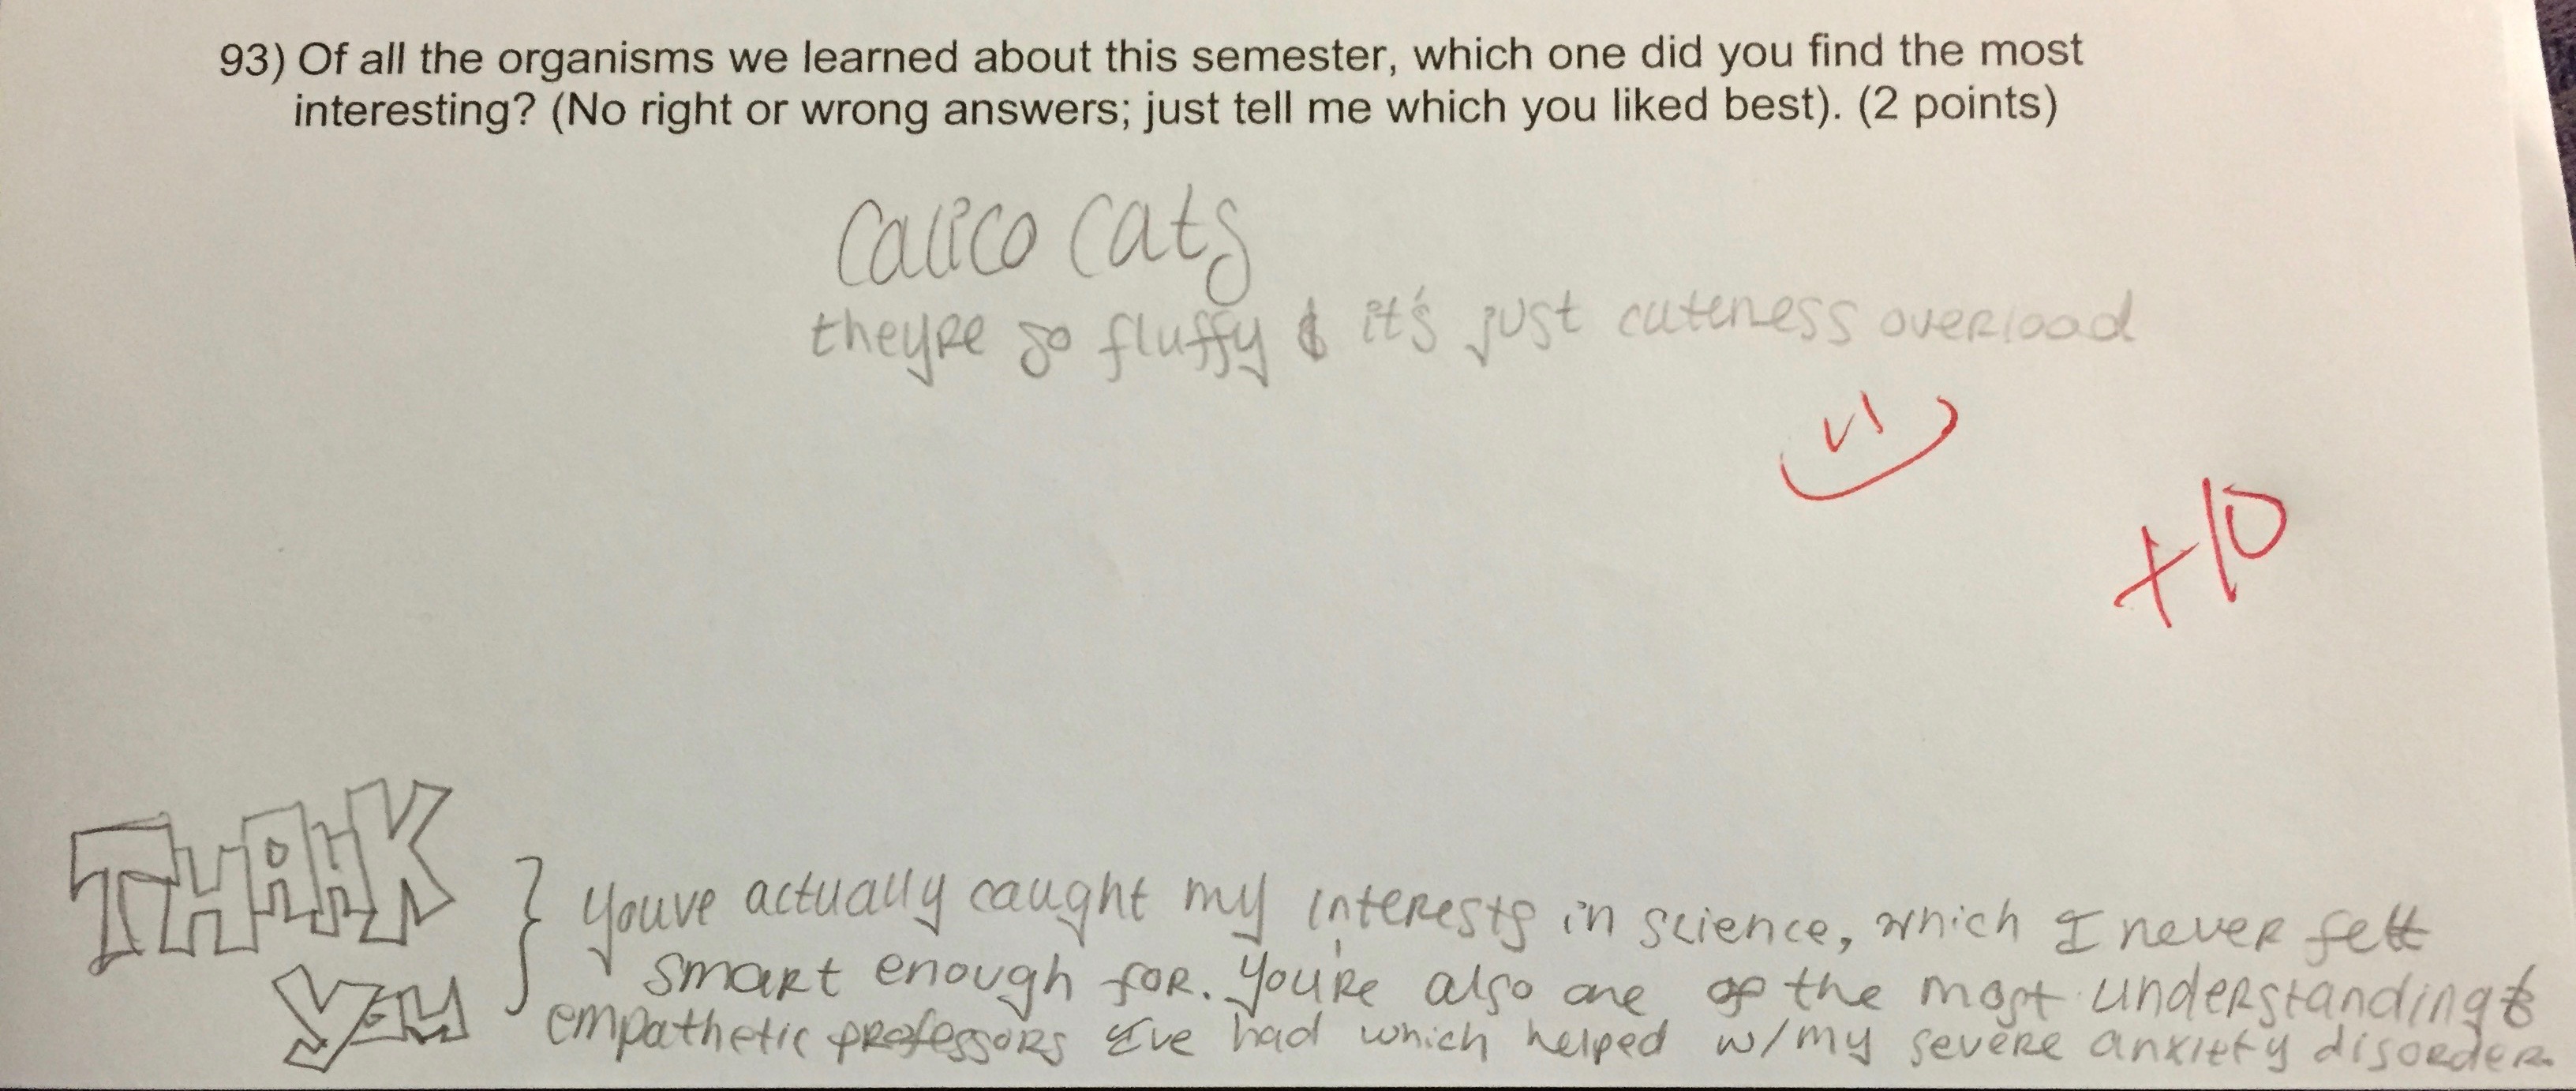 93) Of all the organisms we learned about this semester, which one did you find the most
interesting? (No right or wrong answers; just tell me which you liked best). (2 points)
Calico Cats
theyre so fluffy & it's just cuteness overload
+10
THANK
YOU
} youve actually caught my interests in science, which I never felt
smart enough for. You're also one of the most understanding &
empathetic professors I've had which helped w/my severe anxiety disorder.